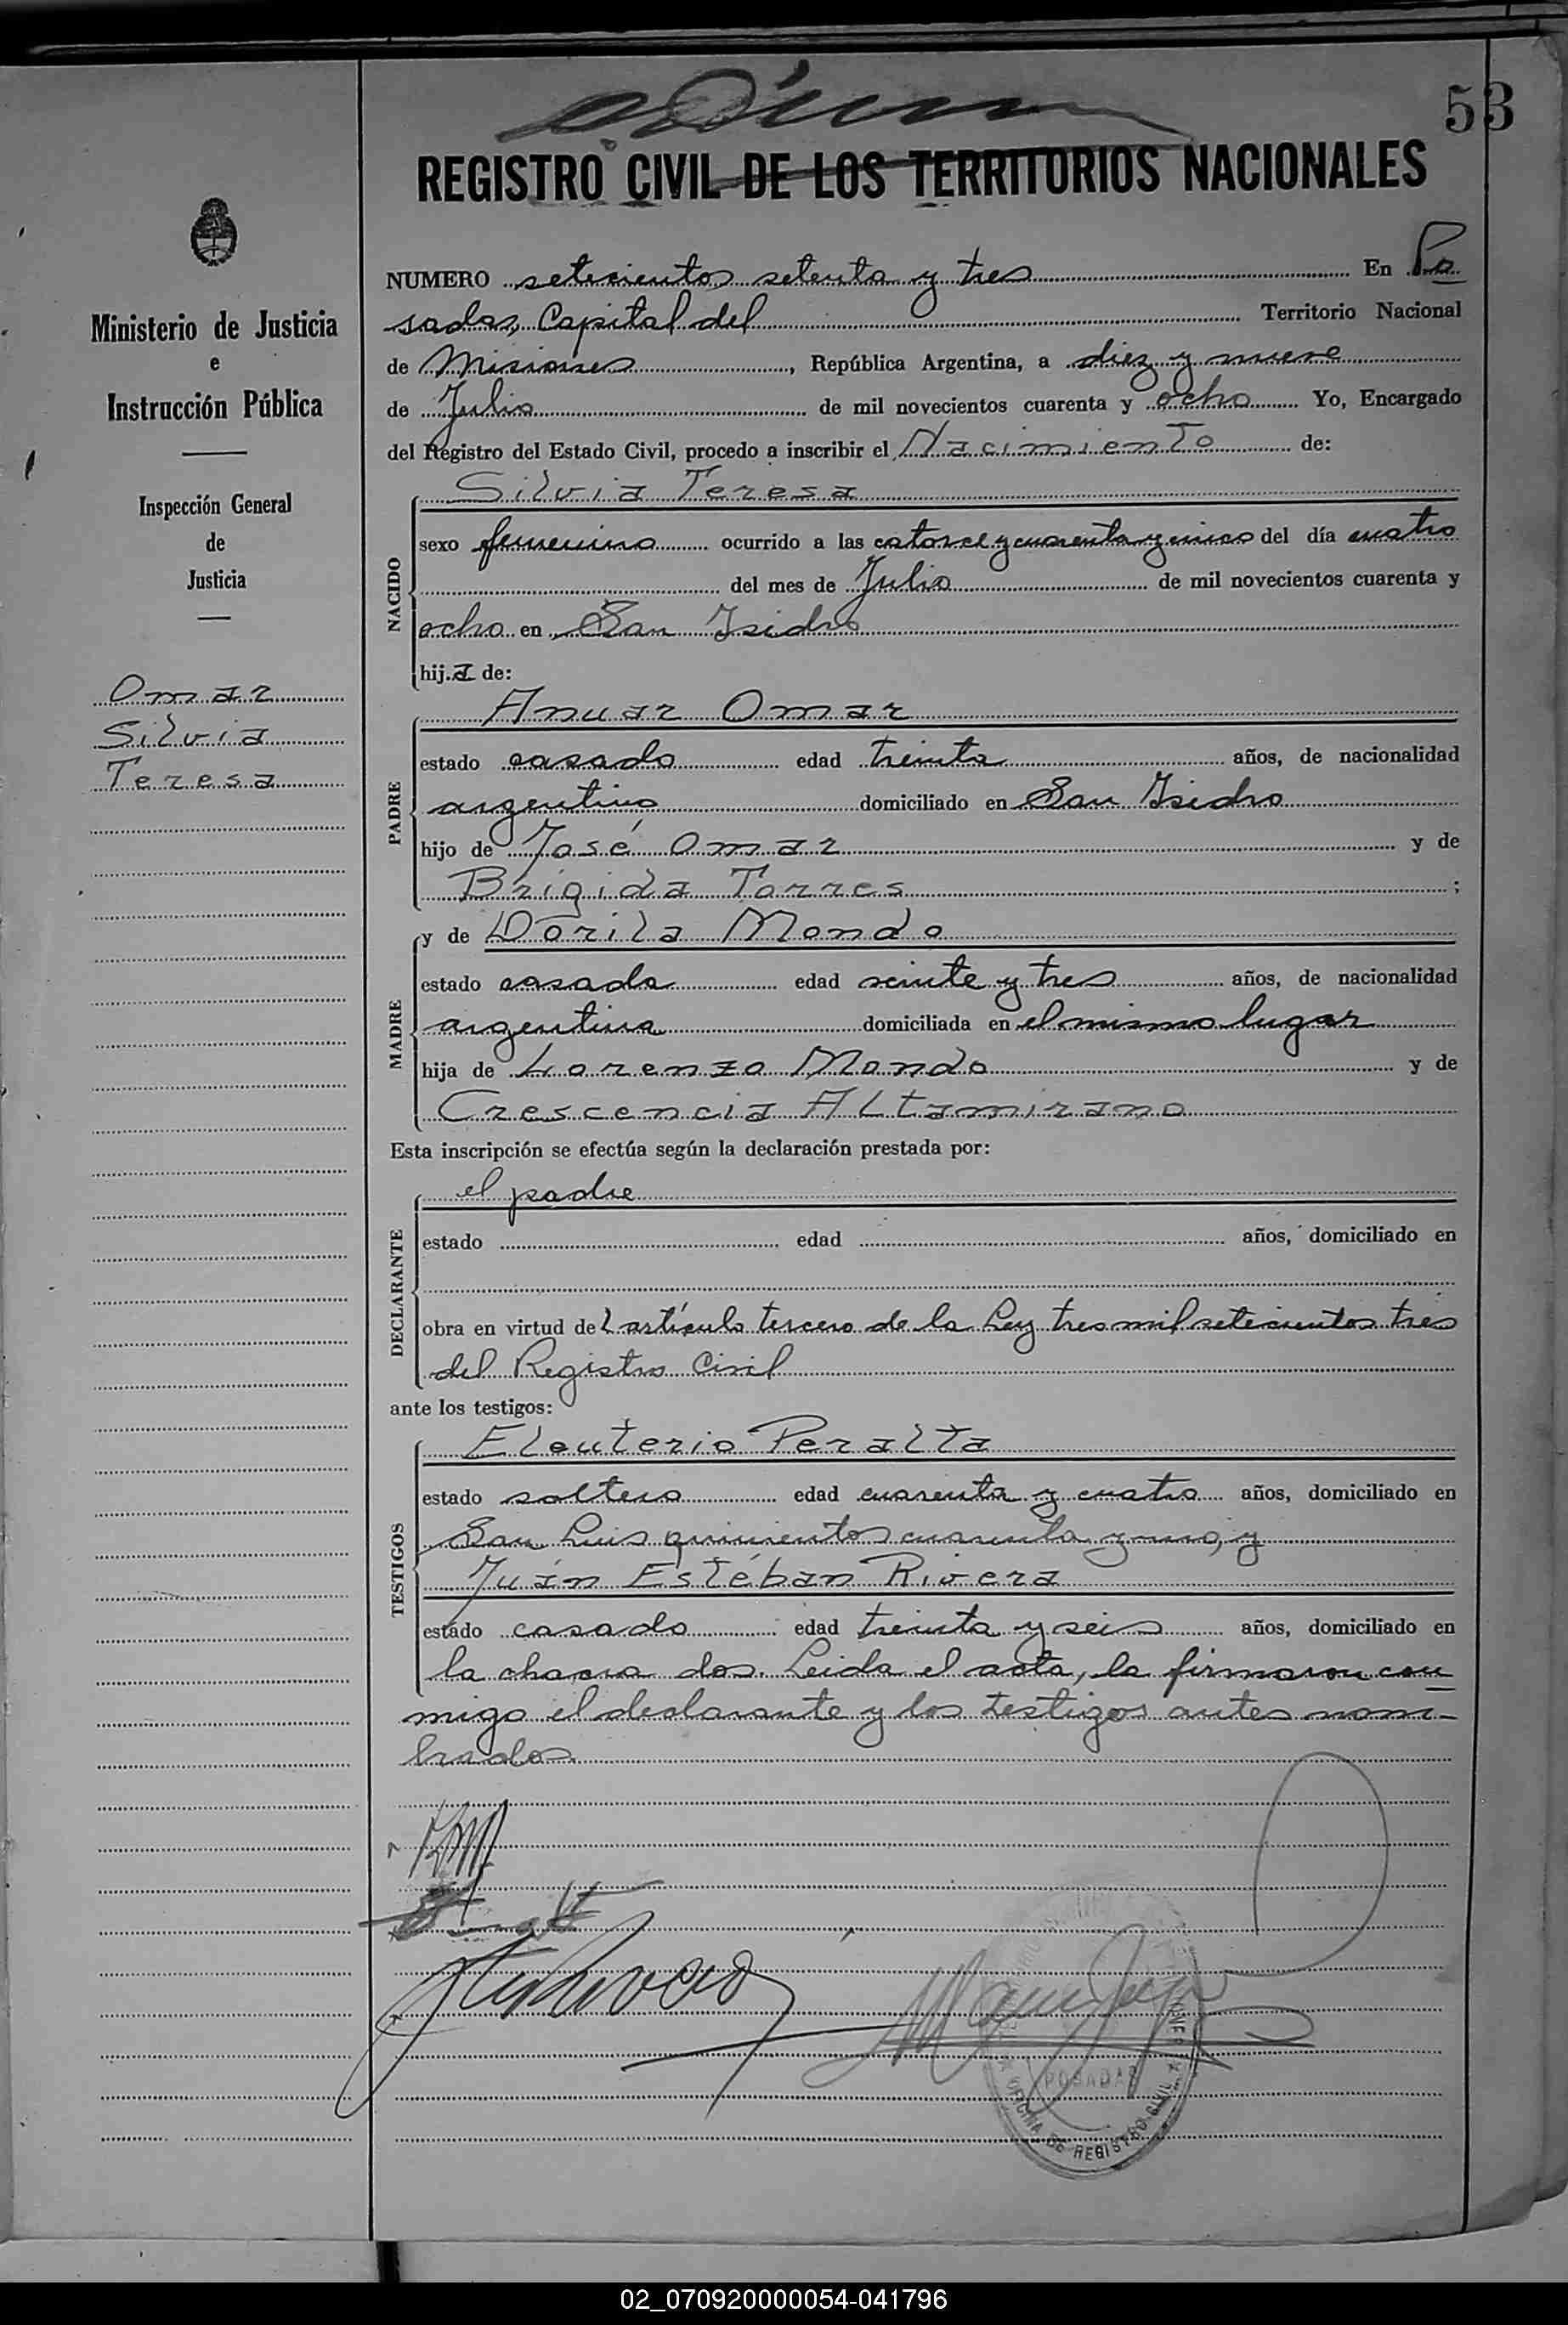 53
REGISTRO CIVIL DE LOS TERRITORIOS NACIONALES
Ministerio de Justicia
e
Instrucción Pública
Inspección General
de
Justicia
Omar
Silvia
Teresa
NUMERO setecientos setenta y tres En Po
sadas, Capital del Territorio Nacional
de Misiones, República Argentina, a diez y nueve
de Julio de mil novecientos cuarenta y ocho Yo, Encargado
del Registro del Estado Civil, procedo a inscribir el Nacimiento de:
NACIDO
Silvia Teresa
sexo femenino ocurrido a las catorce y cuarenta y cinco del día cuatro
del mes de Julio de mil novecientos cuarenta y
ocho en San Isidro
hija de:
PADRE
Anuar Omar
estado casado edad treinta años, de nacionalidad
argentino domiciliado en San Isidro
hijo de José Omar y de
Brígida Torres;
MADRE
y de Dorila Mondo
estado casada edad veinte y tres años, de nacionalidad
argentina domiciliada en el mismo lugar
hija de Lorenzo Mondo y de
Crescencia Altamirano
Esta inscripción se efectúa según la declaración prestada por:
DECLARANTE
el padre
estado edad años, domiciliado en
obra en virtud del artículo tercero de la Ley tres mil setecientos tres
del Registro Civil
ante los testigos:
TESTIGOS
Eleuterio Peralta
estado soltero edad cuarenta y cuatro años, domiciliado en
San Luis quinientos cuarenta y uno, y
Juán Estéban Rivera
estado casado edad treinta y seis años, domiciliado en
la chacra dos. Leida el acta, la firmaron con
migo el declarante y los testigos antes nom-
brados.
POSADAS
OFICINA DE REGISTRO CIVIL
02_070920000054-041796